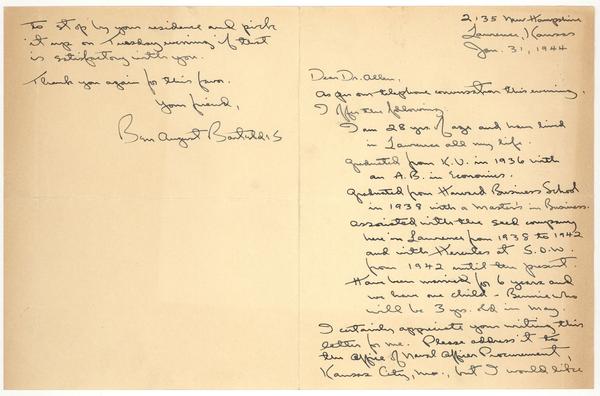 2135 New Hampshire
Lawrence, Kansas
Jan. 31, 1944
Dear Dr. Allen,
As per our telephone conversation this evening,
I offer the following.
I am 28 yrs. of age and have lived
in Lawrence all my life.
Graduated from K.U. in 1936 with
an A.B. in Economics.
Graduated from Harvard Business School
in 1938 with a Master's in Business.
Associated with the seed company
here in Lawrence from 1938 to 1942
and with Hercules at S.O.W.
from 1942 until the present.
Have been married for 6 years and
we have one child - Bennie who
will be 3 yrs. old in May.
I certainly appreciate your writing this
letter for me. Please address it to
the Office of Naval Officer Procurement,
Kansas City, Mo., but I would like
to stop by your residence and pick
it up on Tuesday evening if that
is satisfactory with you.
Thank you again for this favor.
Your friend,
August Barteldes